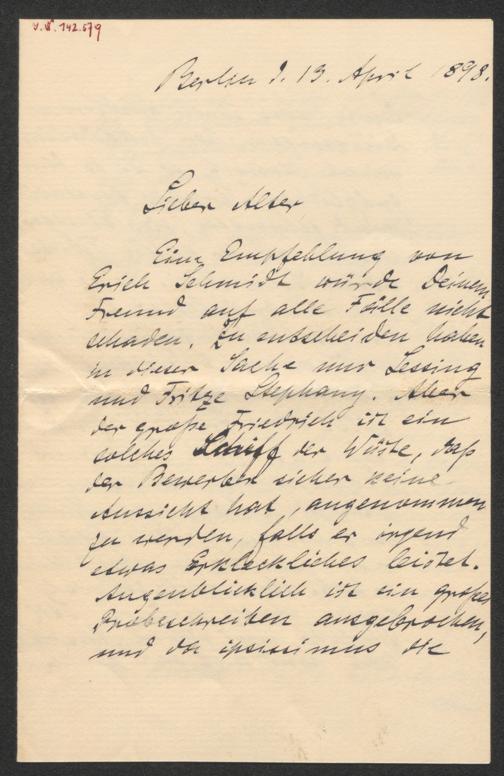 J.N. 142.679
Berlin d. 13. April 1898.
Lieber Alter,
Eine Empfehlung von
Erich Schmidt würde Deinem
Freund auf alle Fälle nicht
schaden. Zu entscheiden haben
in dieser Sache nur Lessing
und Fritze Stephany. Aber
der große Friedrich ist ein
solches Schiff der Wüste, daß
der Bewerber sicher keine
Aussicht hat, angenommen
zu werden, falls er irgend
etwas Erkleckliches leistet.
Augenblicklich ist ein großes
Probeschreiben ausgebrochen,
und da ipsissimus die